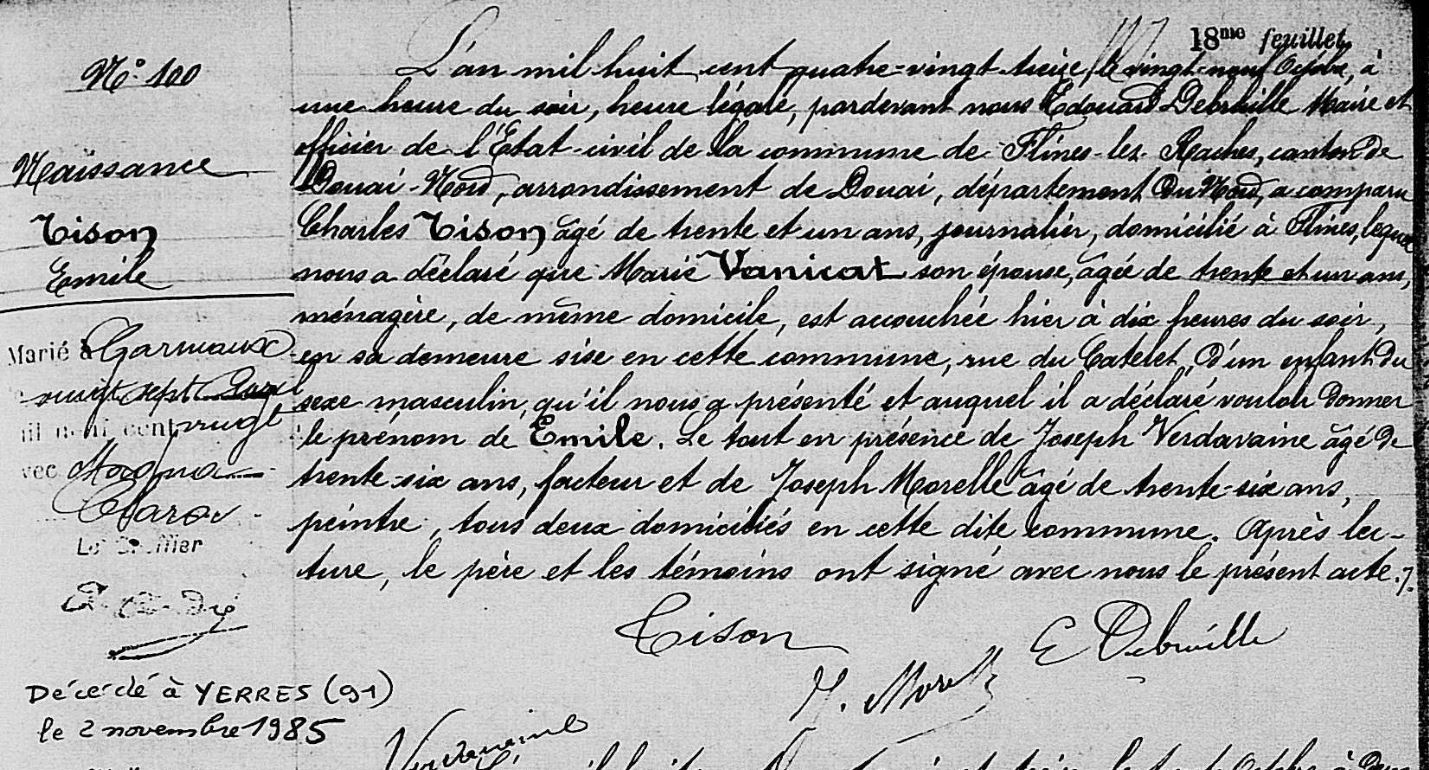 18me feuillet
N° 100
Naissance
Tison
Emile
Marié à Carmaux
vingt sept
mil neuf cent vingt
avec
Clara
Le Greffier
Décédé à YERRES (91)
le 2 novembre 1985
L'an mil huit cent quatre-vingt treize, le vingt-neuf Octobre, à
une heure du soir, heure légale, pardevant nous Edouard Debruille Maire et
officier de l'Etat-civil de la commune de Flines-lez-Raches, canton de
Douai-Nord, arrondissement de Douai, département du Nord, a comparu
Charles Tison âgé de trente et un ans, journalier, domicilié à Flines, lequel
nous a déclaré que Marie Vanicat son épouse, âgée de trente et un ans,
ménagère, de même domicile, est accouchée hier à dix heures du soir,
en sa demeure sise en cette commune, rue du Catelet, d'un enfant du
sexe masculin, qu'il nous a présenté et auquel il a déclaré vouloir donner
le prénom de Emile. Le tout en présence de Joseph Verdavaine âgé de
trente-six ans, facteur et de Joseph Morelle âgé de trente-six ans,
peintre, tous deux domiciliés en cette dite commune. Après lec-
ture, le père et les témoins ont signé avec nous le présent acte.
Tison
E Debruille
J. Morelle
Verdavaine